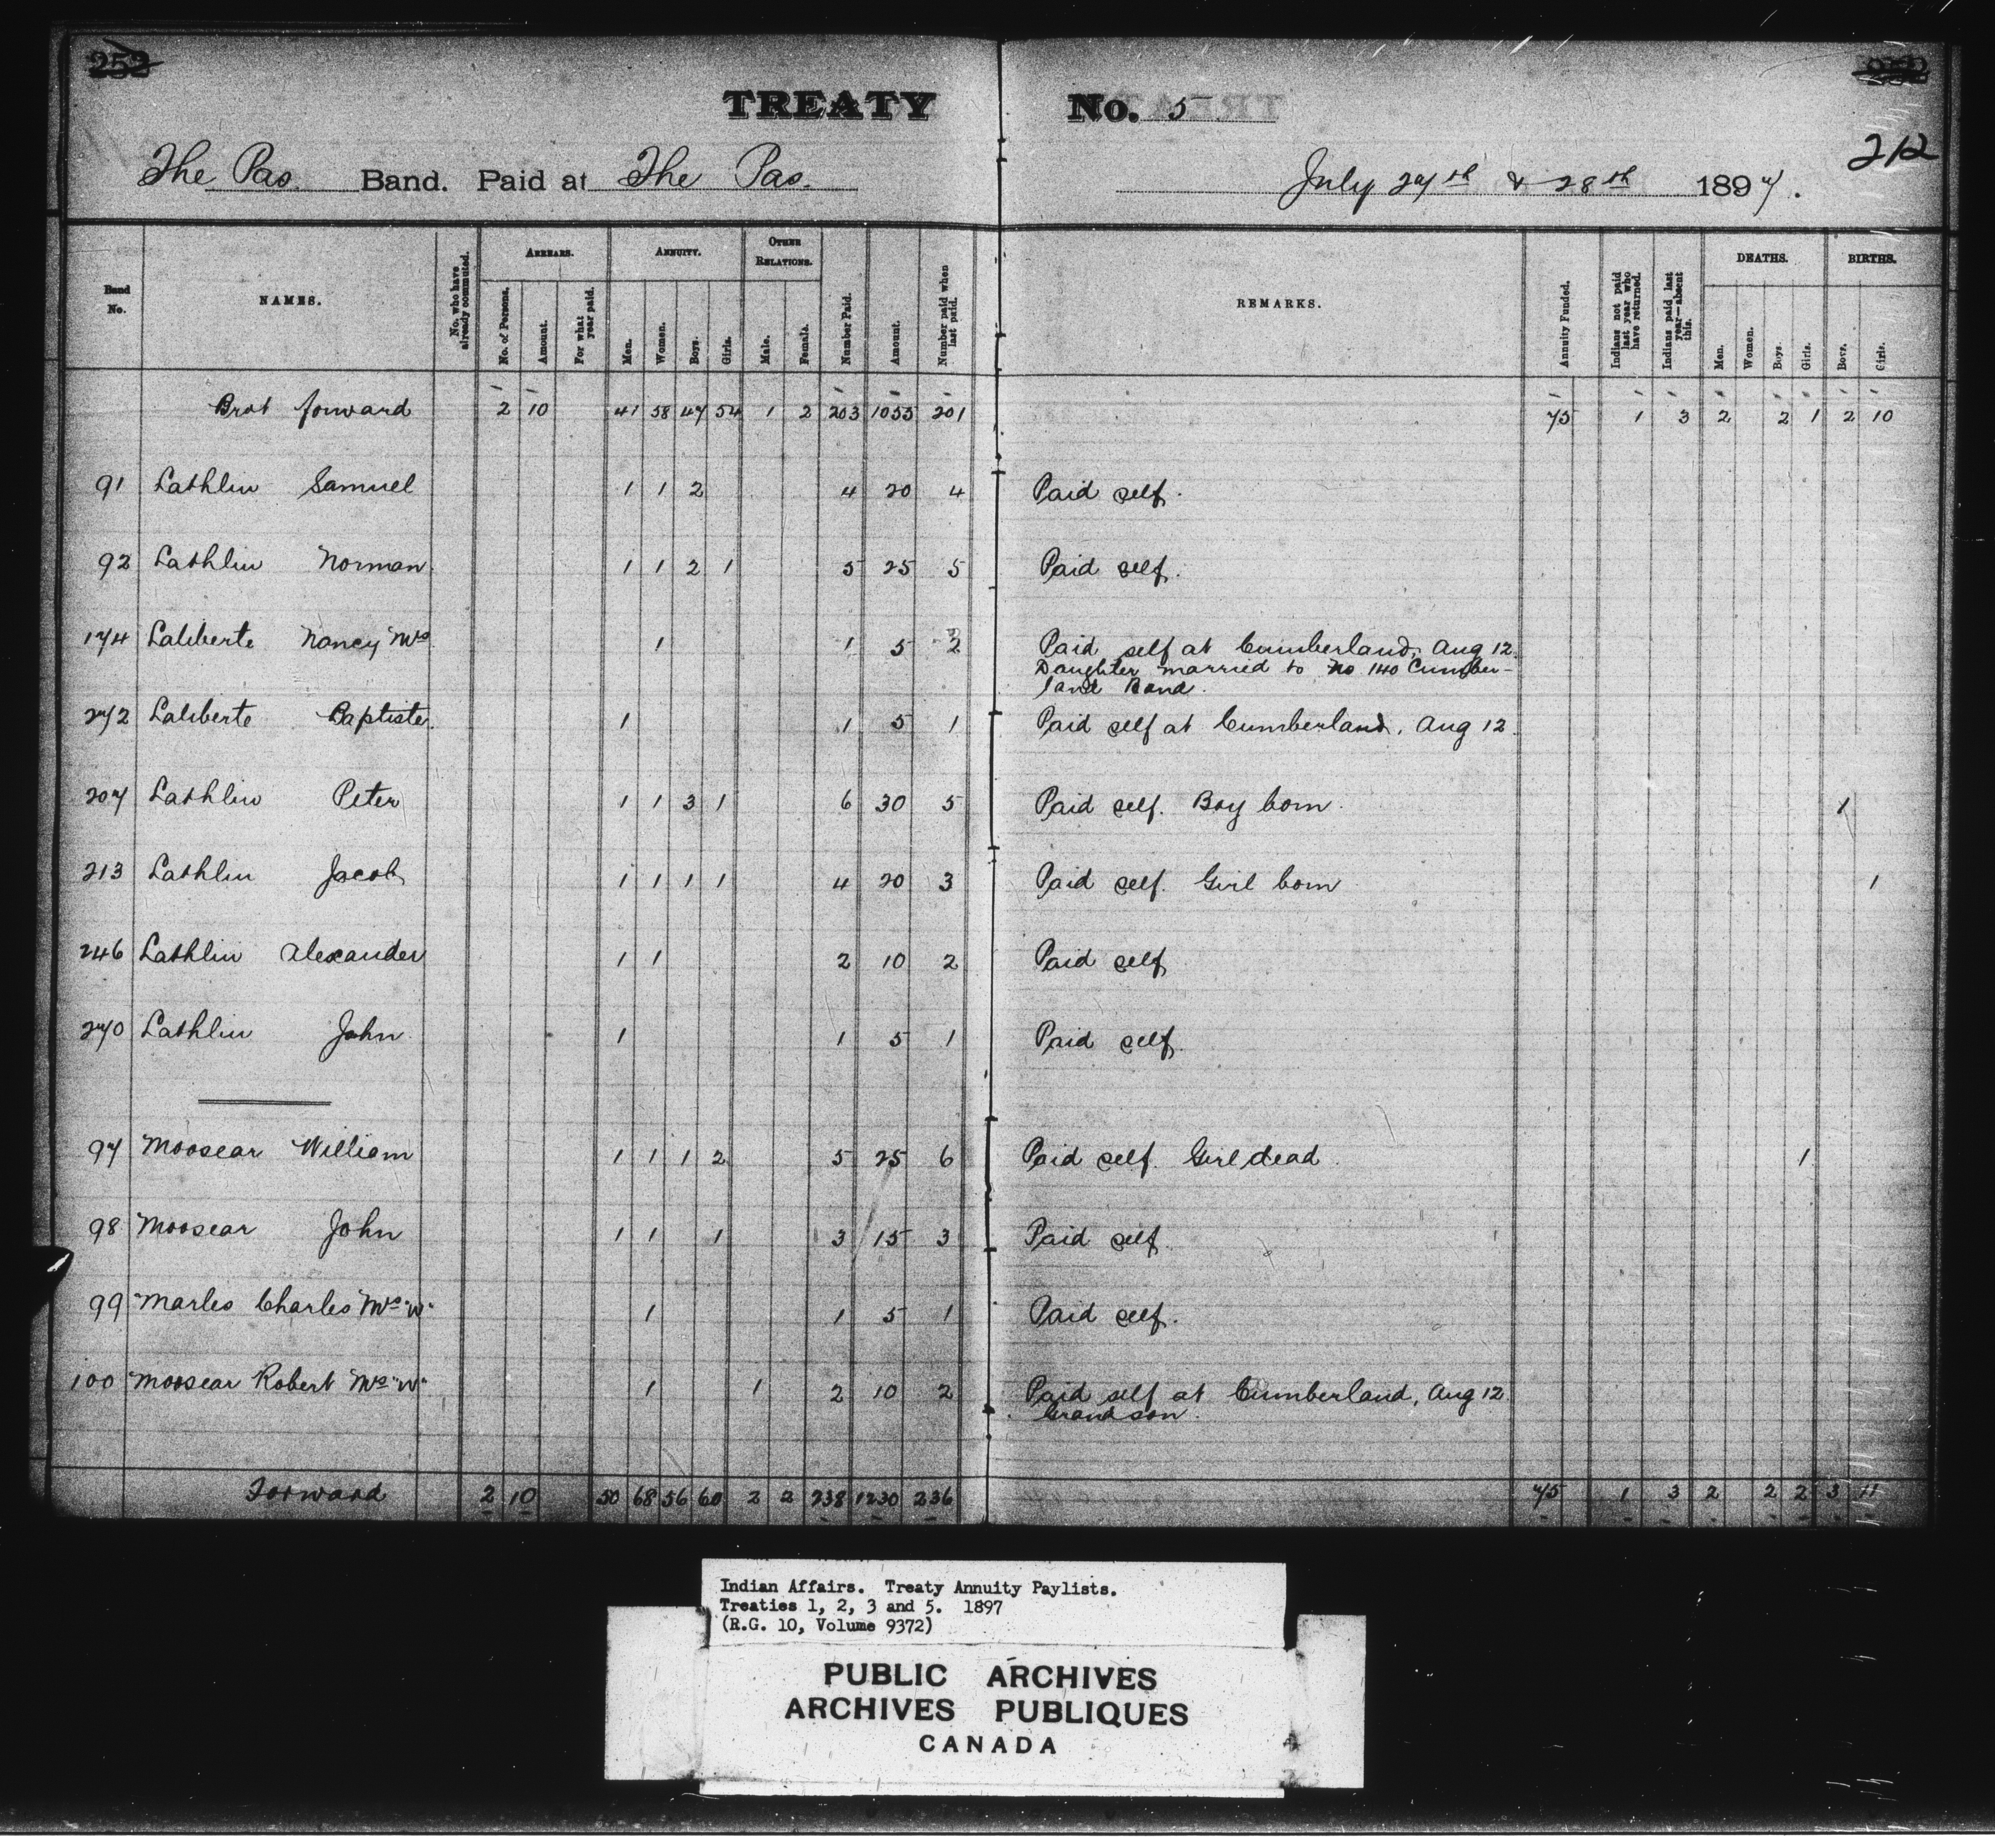 TREATY No. 5
212
The Pas Band. Paid at The Pas. July 27th & 28th 1897.
Band No. NAMES. No. who have already commuted. ARREARS. No. of Persons. Amount. For what year paid. ANNUITY. Men. Women. Boys. Girls. OTHER RELATIONS. Male. Female. Number Paid. Amount. Number paid when last paid. REMARKS. Annuity Funded. Indians not paid last year who have returned. Indians paid last year—absent this. DEATHS. Men. Women. Boys. Girls. BIRTHS. Boys. Girls.
Brot forward 2 10 41 58 47 54 1 2 203 1055 201 75 1 3 2 2 1 2 10
91 Lathlin Samuel 1 1 2 4 20 4 Paid self.
92 Lathlin Norman 1 1 2 1 5 25 5 Paid self.
174 Laliberte Nancy Mrs 1 1 5 2 Paid self at Cumberland, Aug 12.
Daughter married to No 140 Cumber-
land Band.
272 Laliberte Baptiste. 1 1 5 1 Paid self at Cumberland, Aug 12.
207 Lathlin Peter 1 1 3 1 6 30 5 Paid self. Boy born. 1
213 Lathlin Jacob 1 1 1 1 4 20 3 Paid self. Girl born 1
246 Lathlin Alexander 1 1 2 10 2 Paid self
270 Lathlin John 1 1 5 1 Paid self.
97 Moosear William 1 1 1 2 5 25 6 Paid self. Girl dead. 1
98 Moosear John 1 1 1 3 15 3 Paid self.
99 Marles Charles Mrs "W" 1 1 5 1 Paid self.
100 Moosear Robert Mrs "W" 1 1 2 10 2 Paid self at Cumberland, Aug 12.
Grandson.
Forward 2 10 50 68 56 60 2 2 238 1230 236 75 1 3 2 2 2 3 11
Indian Affairs. Treaty Annuity Paylists.
Treaties 1, 2, 3 and 5. 1897
(R.G. 10, Volume 9372)
PUBLIC ARCHIVES
ARCHIVES PUBLIQUES
CANADA